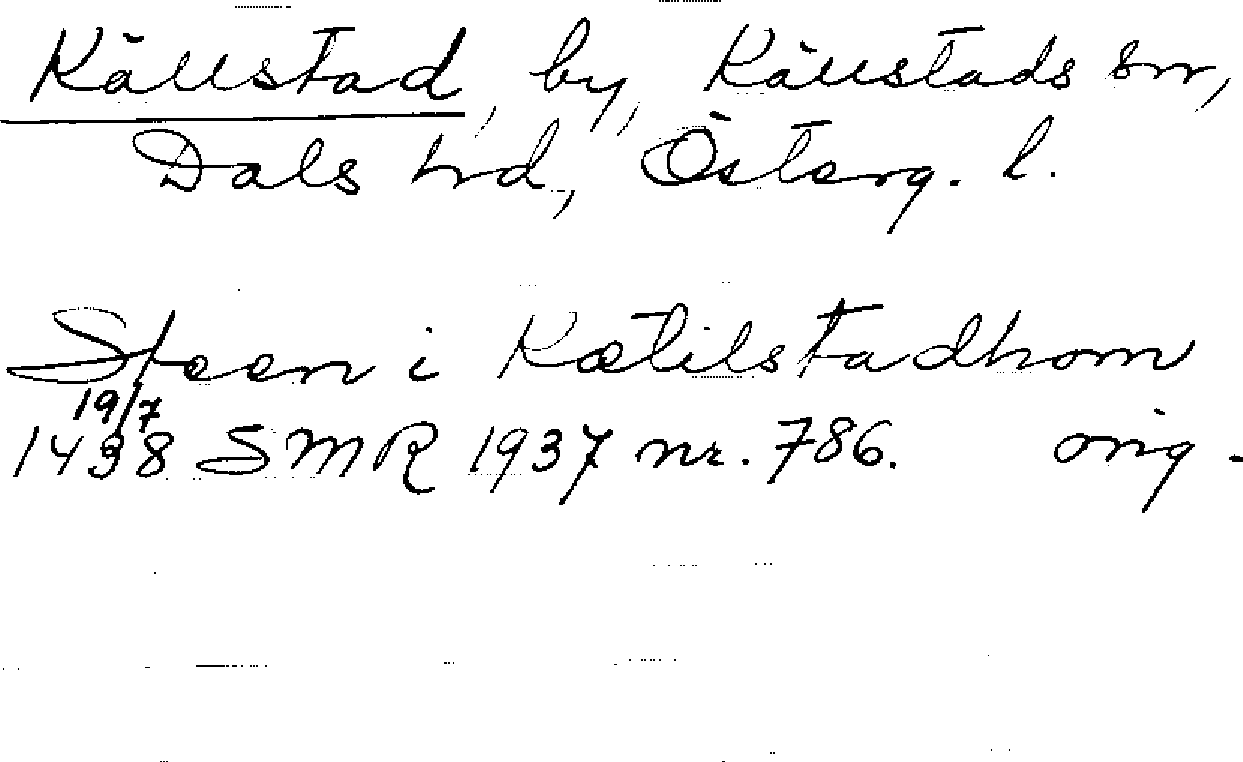 Källstad, by, Källstads sn,
Dals hd, Österg. l.
Steen i Kætilstadhom
19/7
1438 SMR 1937 nr. 786. orig.